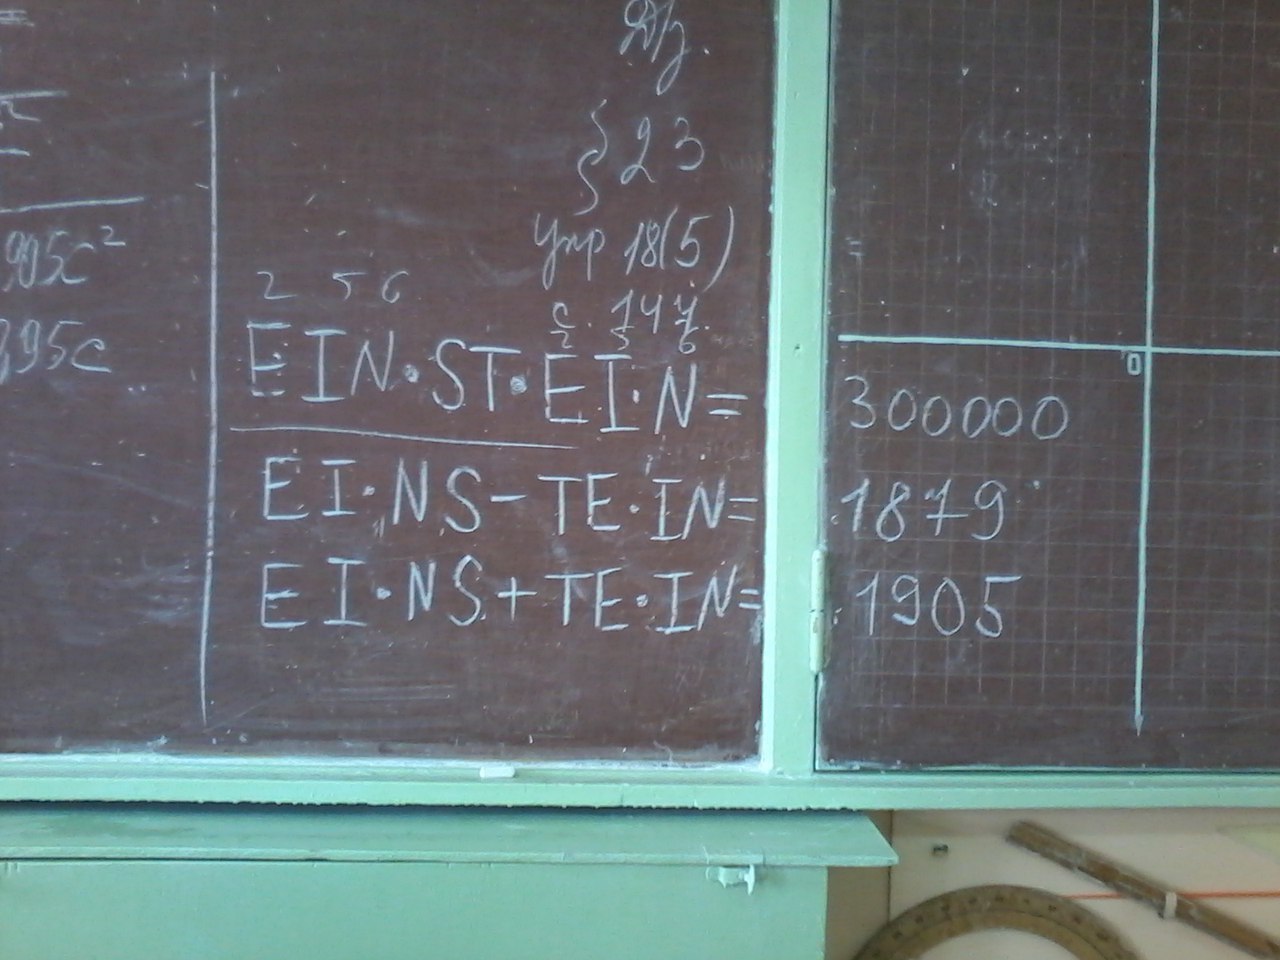 Д/з.
§ 23
упр 18(5)
с. 144.
905c²
895c
2 5 6
2 5 6
EIN·ST·EI·N= 300000
EI·NS-TE·IN= 1879
EI·NS+TE·IN= 1905
0